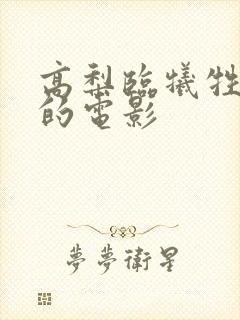 高梨臨犧牲
的電影
夢夢衛星